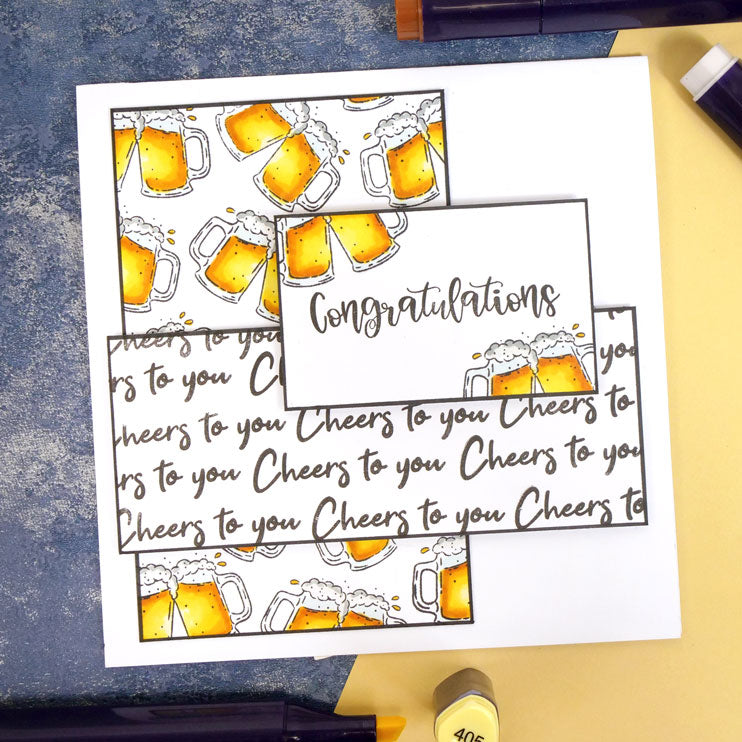 Congratulations
Cheers to you
rs to you C you
heers to you Cheers to you Cheers to
rs to you Cheers to you Cheers to you
Cheers to you Cheers to you Cheers to
405